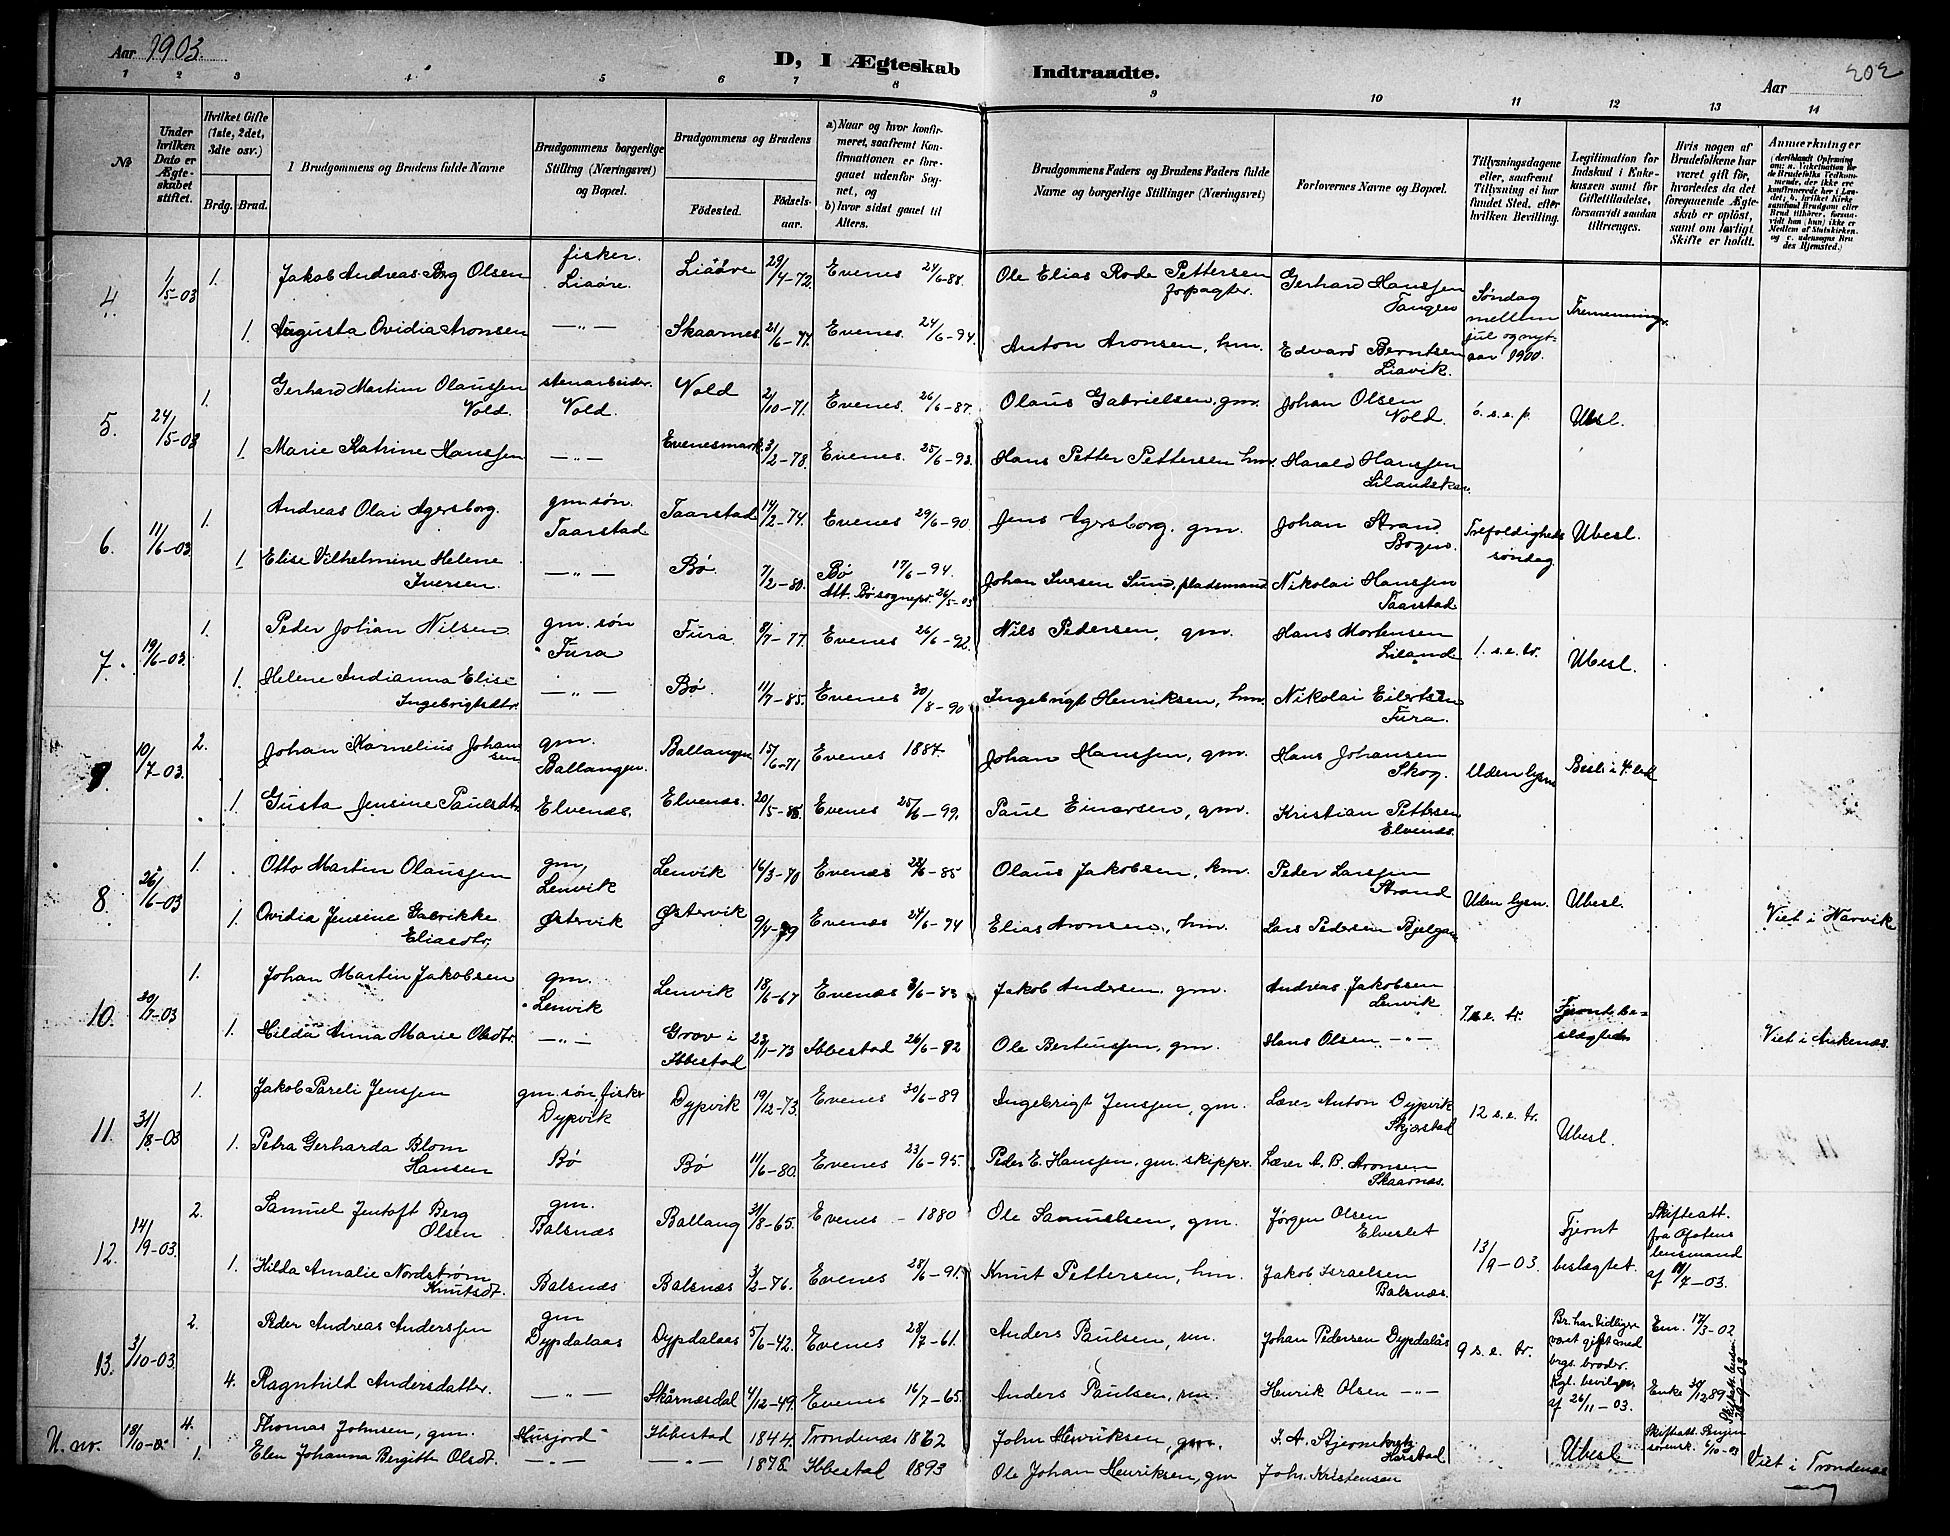 Aar 1903.
D, I Ægteskab Indtraadte.
Aar
202
1 2 3 4 5 6 7 8 9 10 11 12 13 14
No
Under hvilken Dato er Ægteskabet stiftet.
Hvilket Gifte (1ste, 2det, 3die osv.)
Brdg. Brud.
1 Brudgommens og Brudens fulde Navne
Brudgommens borgerlige Stilling (Næringsvei) og Bopæl.
Brudgommens og Brudens
Fødested.
Fødselsaar.
a) Naar og hvor konfirmeret, saafremt Konfirmationen er foregaaet udenfor Sognet, og
b) hvor sidst gaaet til Alters.
Brudgommens Faders og Brudens Faders fulde Navne og borgerlige Stillinger (Næringsvei)
Forlovernes Navne og Bopæl.
Tillysningsdagene eller, saafremt Tillysning ei har fundet Sted, efter hvilken Bevilling.
Legitimation for Indskud i Enkekassen samt for Giftetilladelse, forsaavidt saadan tiltrænges.
Hvis nogen af Brudefolkene har været gift før, hvorledes da det foregaaende Ægteskab er opløst, samt om lovligt Skifte er holdt.
Anmærkninger
4. 1/5-03 1. Jakob Andreas Berg Olsen fisker. Liaöre. Liaöre 29/4-72. Evenes 24/6-88. Ole Elias Rode Pettersen forpagter. Gerhard Hanssen Tangen Søndag mellem jul og nytaar 1900. Tremenninge.
1. Augusta Ovidia Aronsen —"— Skaarnes 21/6-77. Evenes. 24/6-94. Anton Aronsen, hm. Edvard Berntsen Liavik.
5. 24/5-03 1. Gerhard Martin Olaussen Vold. stenarbeider. Vold. Vold 2/10-71. Evenes. 26/6-87. Olaus Gabrielsen, gm. Johan Olsen Vold. 6. s. e. p. Ubesl.
1. Marie Katrine Hanssen —"— Evenesmark 3/2-78. Evenes. 25/6-93. Hans Petter Pettersen hm. Harald Hanssen Lilandskar.
6. 11/6-03 1. Andreas Olai Agersborg. gm. søn. Taarstad Taarstad 14/2-74. Evenes 29/6-90. Jens Agersborg. gm. Johan Strand Bogen. Trefoldigheds søndag Ubesl.
1. Elise Vilhelmine Helene Iversen. —"— Bø. 7/2-80. Bø 17/6-94. Att. Bø sognepr. 26/5-03 Johan Iversen Sund, pladsmand Nikolai Hanssen Taarstad
7. 19/6-03. 1. Peder Johan Nilsen. gm. søn Fura Fura 8/7-77 Evenes 26/6-92. Nils Pedersen, gm. Hans Mortensen Liland 1. s. e. tr. Ubesl.
1. Helene Andianna Elise Ingebrigtsdtr. —"— Bø 11/7-85. Evenes 30/8-90 Ingebrigt Henriksen, hm. Nikolai Eilertsen Fura.
9. 10/7-03. 2. Johan Kornelius Johansen gm. Ballangen. Ballangen 15/6-71 Evenes 1887. Johan Hanssen, gm. Hans Johansen Skog. Uden lysn. Besl. i 4. led
1. Gusta Jensine Paulsdtr. Elvenæs. Elvenæs. 20/5-85 Evenes 25/6-99. Paul Einarsen, gm. Kristian Pettersen Elvenæs.
8. 26/6-03 1. Otto Martin Olaussen gm. Lenvik Lenvik 16/3-70 Evenæs 28/6-85 Olaus Jakobsen, hm. Peder Larssen Strand Uden lysn. Ubesl. Viet i Narvik
1. Ovidia Jensine Eliasdtr. Østervik Østervik 9/4-79 Evenæs 24/6-94 Elias Aronsen, hm. Lars Pedersen
10. 30/7-03 1. Johan Martin Jakobsen gm. Lenvik Lenvik 18/6-67 Evenæs 3/6-83 Jakob Andersen, gm. Andreas Jakobsen Lenvik 7. s. e. tr. Fjernt beslægtede
1. Hilda Anna Marie Olsdtr. —"— Grov i Ibbestad 23/1-73 Ibbestad 26/6-82 Ole Bertinssen, gm. Hans Olsen —"— Viet i Ankenæs.
11. 31/8-03 1. Jakob Pareli Jenssen gm. søn, fisker Dypvik Dypvik 19/12-73. Evenes 30/6-89 Ingebrigt Jenssen, gm. Lærer Anton Dypvik Skjestad 12 s. e. tr. Ubesl.
1. Petra Gerharda Blom Hansen Bø Bø 11/6-80. Evenes 23/6-95. Peder E. Hanssen, gm. skipper. Lærer A. B. Aronsen Skaarnæs.
12. 14/9-03. 2. Samuel Jentoft Berg Olsen gm. Balsnæs Ballang 31/8-65. Evenes - 1880 Ole Samuelsen, gm. Jørgen Olsen Elveslet 13/9-03. Fjernt beslægtet. Skifteatt. fra Ofotens lensmand af 14/7-03.
1. Hilda Amalie Nordstrøm Knutsdt. Balsnæs Balsnæs 3/12-76. Evenes 28/6-91. Knut Pettersen, hm. Jakob Israelsen Balsnæs.
13. 3/10-03. 2. Peder Andreas Anderssen gm Dypdalaas Dypdalaas 5/6-42. Evenes 28/7-61. Anders Paulsen, Johan Pedersen Dypdalås 9 s. e. tr. Br. har tidligere været gift med brgs. broder. Kgl. bevilgn. af 26/11-03. Em. 17/3-02
4. Ragnhild Andersdatter. —"— Skårnæsdal 4/12-49. Evenes 16/7-65. Anders Paulsen, Henrik Olsen —"— Enke 30/12 89
U. nr. 18/10-03 4. Thomas Johnsen, gm. Husjord Ibbestad 1844. Trondenæs 1862 John Henriksen, gm. J. A. Harstad Ubesl. Skifteatt. 6/10-03 Viet i Trondenæs
1. Elen Johanna Bergitte Olsdt. —"— —"— 1878 Ibbestad 1893 Ole Johan Henriksen, gm Joh. Kristensen